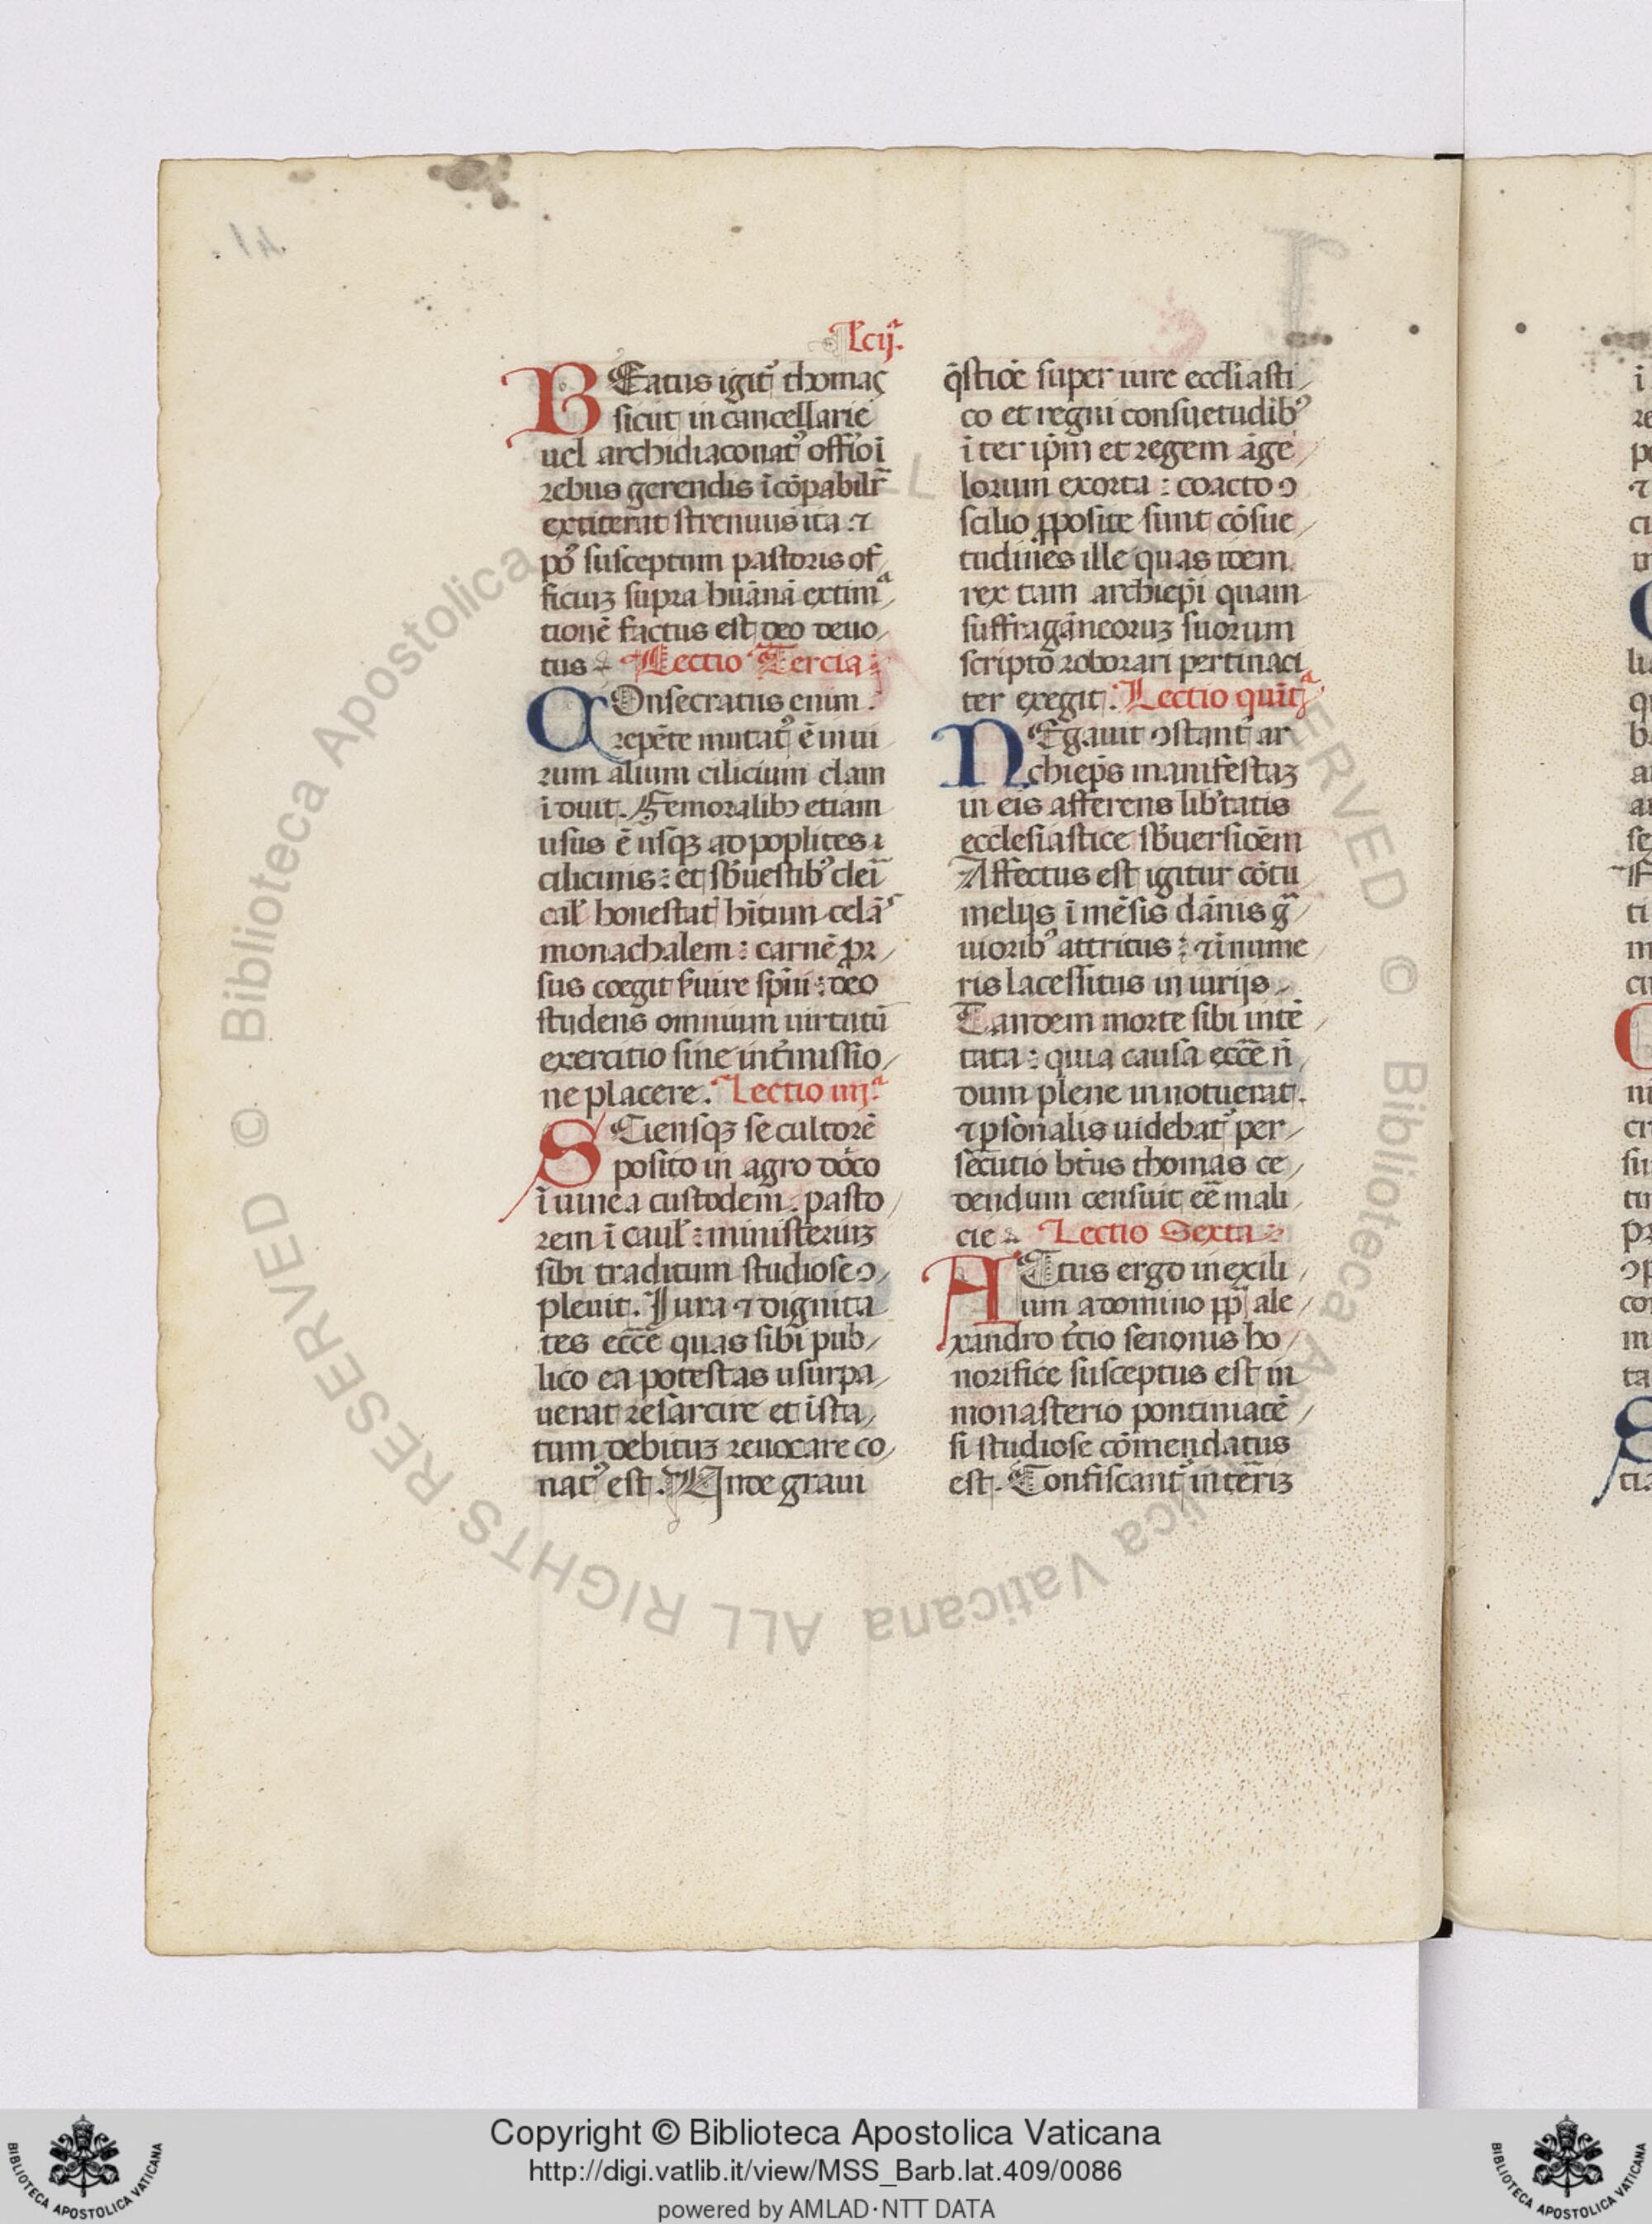 Lc̄ij.ª
BEatus igit᷒ thomas
sicut in cancellarie
uel archidiaconat᷒ offi͞o ī
rebus gerendis īcōpabilr̄
extiterat strenuus ita ⁊
pō susceptum pastoris of
ficiuꝫ supra hūānā extimª
tionē factus est deo deuo
tus Lectio Tercia
COnsecratus enim
repēte mutat᷒ ē in ui
rum alium cilicium clam
īduit. Femoralibꝫ etiam
usus ē usqꝫ ad poplites
cilicinis: et sb̄uestibꝰ cleī
cal̄ honestat᷒ hītum celās
monachalem: carnē ꝓr
sus coegit s̄uire spūi: deo
studens omnium uirtutū
exercitio sine int̄missio
ne placere. Lectio iiij.ª
SCiensqꝫ se cultorē
posito in agro dōco
ī uinea custodem. pasto
rem ī caul̄: ministeriuꝫ
sibi traditum studiose ↄ
pleuit. Jura ⁊ dignita
tes ecc̄e quas sibi pub
lico ea potestas usurpa
uerat resarcire et ista
tum debituꝫ reuocare co
nat᷒ est. Unde graui
q̄stiōe super iure ecclīasti
co et regni consuetudībꝰ
īter ip̄m et regem āge
lorum exorta: coacto ↄ
scilio ꝓposite sunt cōsue
tudines ille quas idem
rex tam archiep̄i quam
suffragāneoruꝫ suorum
scripto roborari pertinaci
ter exegit. Lectio quīt̄ª
NEgauit ↄstant᷒ ar
chiep̄s manifestaꝫ
in eis asserens lib̄tatis
ecclesiastice sb̄uersiōem
Affectus est igitur cōtu
melijs īmēsis dānis gª
uioribꝰ attritus: ⁊ īnume
ris lacessitus iniurijs
Tandem morte sibi intē
tata: quia causa ecc̄e n̄
dum plene innotuerat.
⁊ ꝑsonalis uidebat᷒ per
secutio bt̄us thomas ce
dendum censuit ee᷒ mali
cie Lectio Sexta
ACtus ergo in exili
um a domino pp̄ ale
xandro t̄cio senonis ho
norifice susceptus est in
monasterio pontiniacē
si studiose cōmendatus
est. Confiscant᷒ interiꝫ
Copyright © Biblioteca Apostolica Vaticana
http://digi.vatlib.it/view/MSS_Barb.lat.409/0086
powered by AMLAD·NTT DATA